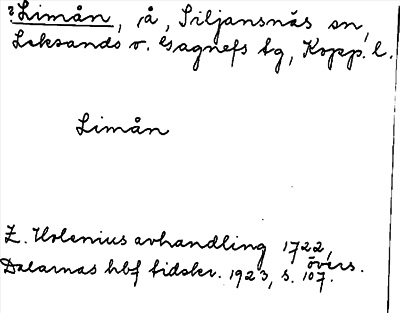 Limån, å, Siljansnäs sn,
Leksands o. Gagnefs tg, Kopp. l.
Limån
Z. Holenius avhandling 1722,
övers.
Dalarnas hbf tidskr. 1923, s. 107.